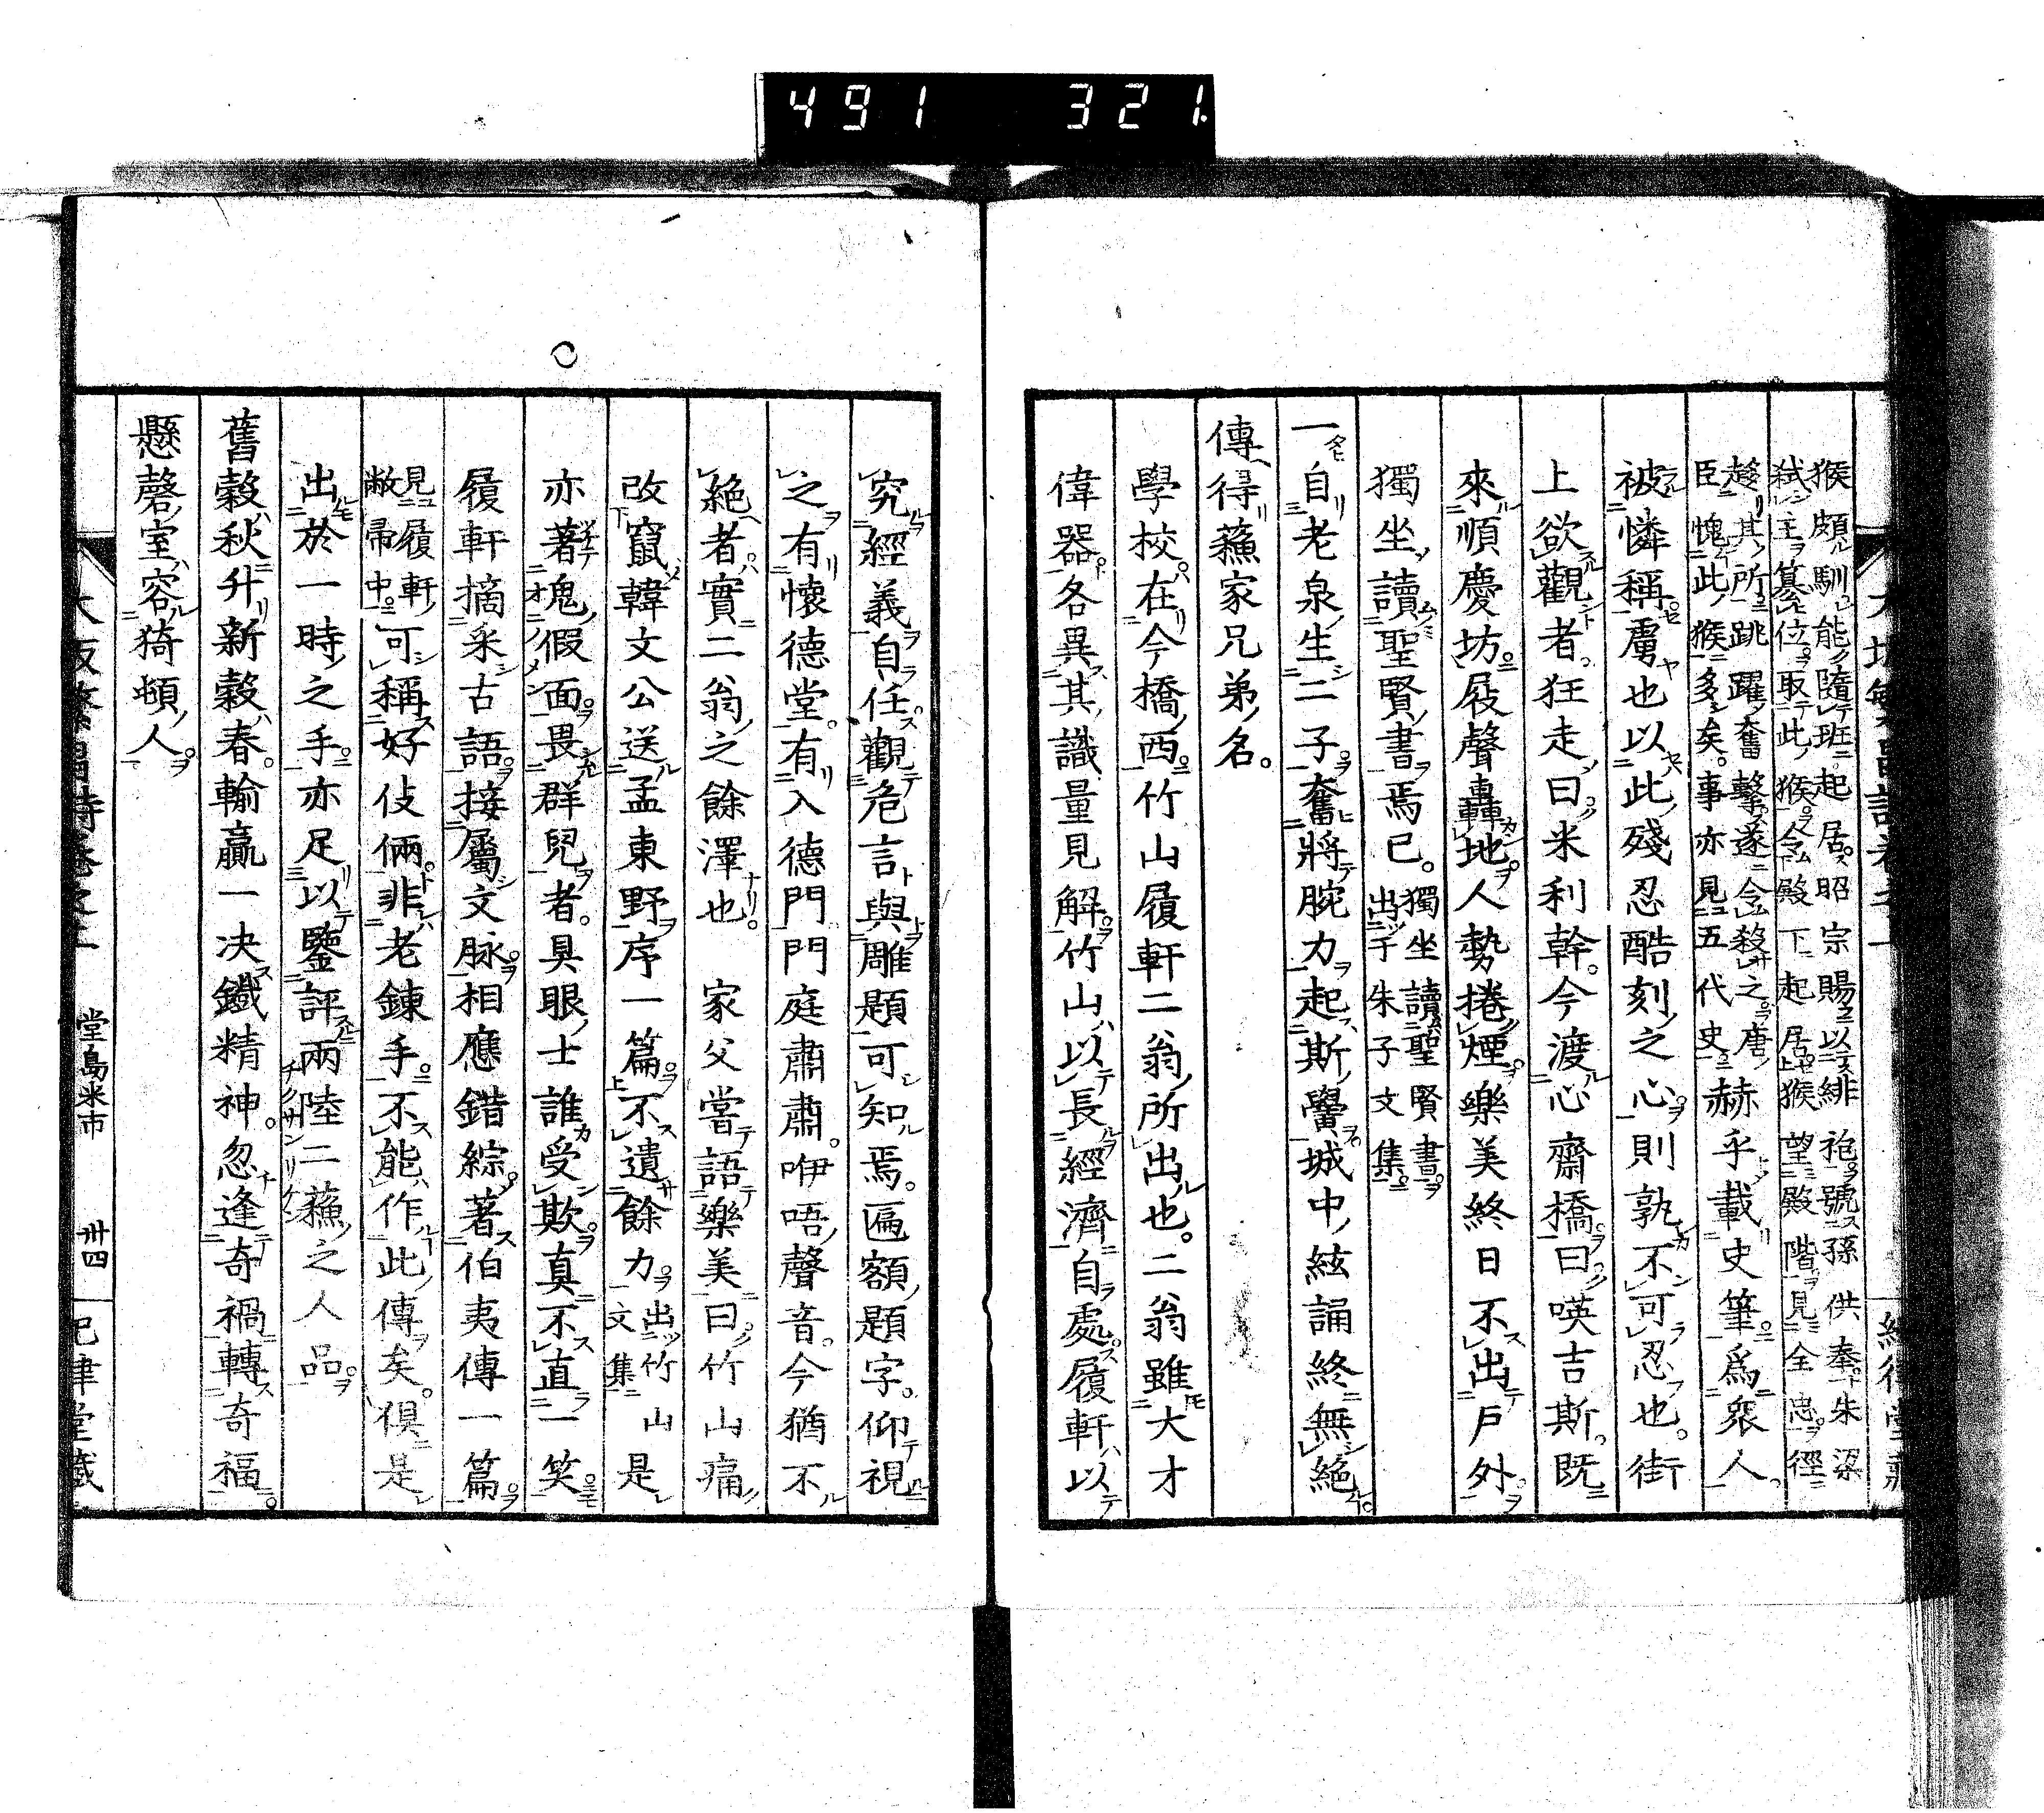 491 321.
猴頗馴能隨班起居昭宗賜以緋袍號孫供奉朱梁
弑主簒位取此猴令殿下起居猴望殿階見全忠徑
趍其所跳躍奮擊遂令殺之唐
臣愧此猴多矣事亦見五代史
赫乎載史筆爲衆人
被憐稱焉也以此殘忍酷刻之心則孰不可忍也街
上欲觀者狂走曰米利幹今渡心齋橋曰嘆吉斯既
來順慶坊屐聲轟地人勢捲煙樂美終日不出戶外
獨坐讀聖賢書焉已
獨坐讀聖賢書
出于朱子文集
一自老泉生二子奮將腕力起斯黌城中絃誦終無絕
傳得蘓家兄弟名
學校在今橋西竹山履軒二翁所出也二翁雖大才
偉器各異其識量見解竹山以長經濟自處履軒以
究經義自任觀危言與雕題可知焉匾額題字仰視
之有懷德堂有入德門門庭肅肅咿唔聲音今猶不
絕者實二翁之餘澤也 家父嘗語樂美曰竹山痛
改竄韓文公送孟東野序一篇不遺餘力
出竹山
文集
是
亦著鬼假面畏群兒者具眼士誰受欺真不直一笑
履軒摘采古語接屬文脉相應錯綜著伯夷傳一篇
見履軒
敝帚中
可稱好伎倆非老鍊手不能作此傳矣俱是
出於一時之手亦足以鑒評兩陸二蘓之人品
舊穀秋升新穀春輸贏一决鐵精神忽逢奇禍轉奇福
懸磬室容猗頓人
堂島米市 卅四